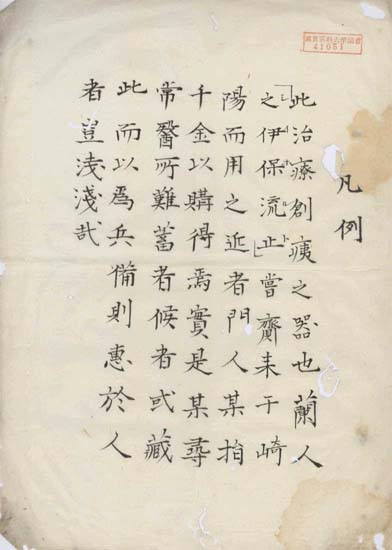 41051
凡例
此治療創痍之器也蘭人
「之伊保流止」嘗齎来于崎
陽而用之近者門人某捐
千金以購得焉實是某尋
常醫所難蓄者候者或藏
此而以爲兵備則惠於人
者豈浅淺哉